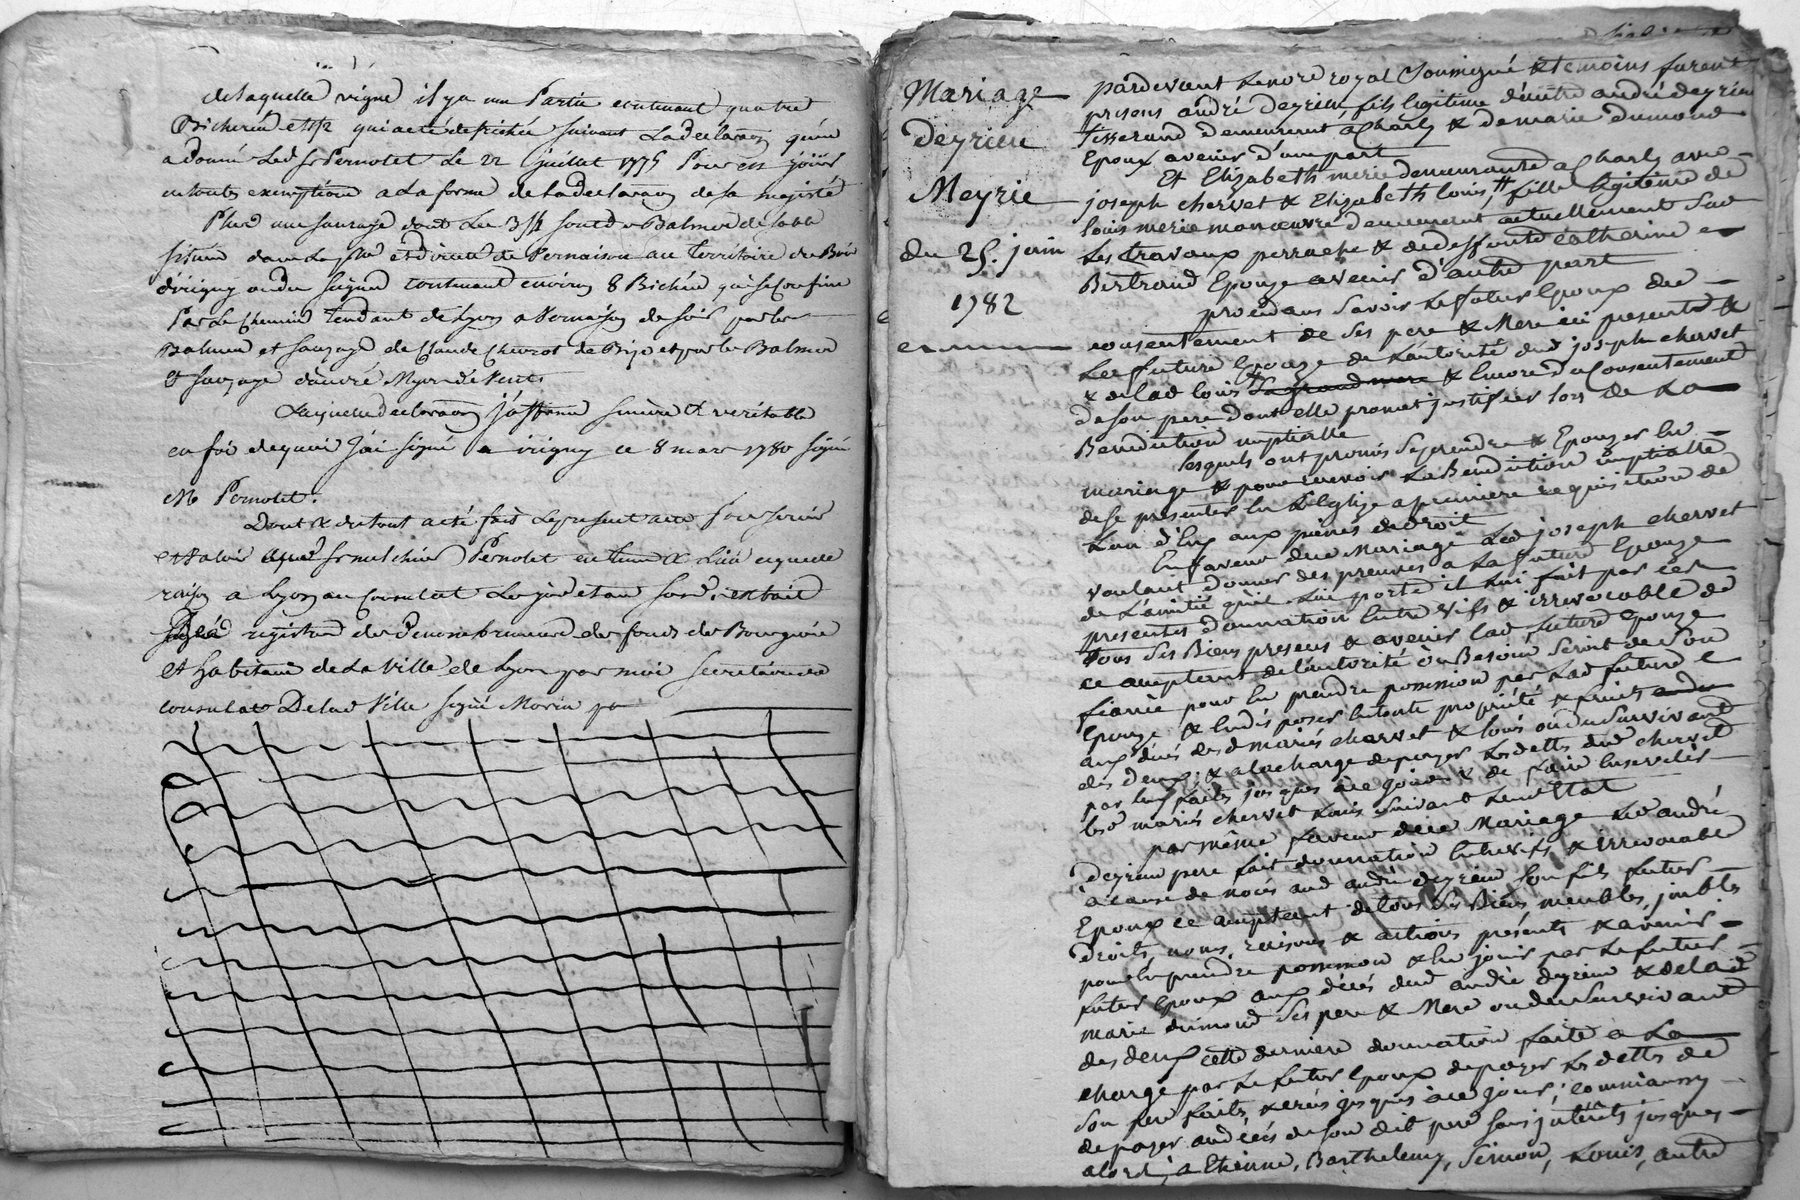 de laquelle vigne il y a une Partie contenant quatre
Bicherée et 1/2 qui a eté defrichée suivant la declaraon qu'en
a donné led sr Pernotet Le 22 juillet 1775 Pour en jouir
en toutes exemptions a la forme de la declaraon de sa majesté
Plus une sauzage dont les 3/4 sont de Balmes de sable
située dans la psse et directe de Vernaison au territoire du Bois
d'irigny contenant environ 8 Bicherée qui se confine
Par Le chemin tendant de Lyon a Vernaison de soir par les
Balmes et sauzage de Claude de Bize et par les Balmes
& sauzage d'andré de Vent.
Laquelle declaraon j'affirme sincere & veritable
en foi de quoi j'ai signé a irigny ce 8 mars 1780 signé
Mr Pernotet.
Dont & du tout acte fait le present aux fins
et valoir aud sr melchior Pernotet en tems & lieu ce que de
raison a Lyon au consulat Les jour et an susd. extrait
registres des Denombrements des fonds des Bourgeois
et habitans de La Ville de Lyon par moi secretaire du
consulat De lad Ville signé Morin
Mariage
deyrieu
Meyrie
du 25. juin
1782
pardevant le nore royal soussigné & temoins furent
presens andré deyrieu fils legitime d'autre andré deyrieu
tisserand demeurent a Charly & de marie dumond
Epoux avenir d'une part
Et Elizabeth merie demeurante a Charly avec
joseph chervet & Elizabeth louis, # fille legitime de
louis merie manœuvre demeurent actuellement sur
les travaux perrache & de deffunte catherine
Bertrand Epouze avenir d'autre part
procedans savoir le futur Epoux du
consentement de ses pere & Mere ici presents &
La future Epouze de l'autorité dud joseph chervet
& de lad louis sa grand mere & encore du consentement
de son pere dont elle promet justifier lors de La
Benediction nuptialle
lesquels ont promis se prendre & Epouzer en
mariage & pour recevoir La Benediction nuptialle
de se presenter en L'Eglize a premiere requisition de
L'un d'Eux aux peines de droit
En faveur dud Mariage Led joseph chervet
voulant donner des preuves a La future Epouze
de L'amitié qu'il lui porte il lui fait par ces
presentes donnation entre vifs & irrevocable de
tous ses Biens presens & avenir lad future Epouze
ce acceptant de l'autorité où Besoin seroit de son
fiancé pour en prendre possession par Lad future
Epouze & en disposer en toute propriété &
aux décés desd mariés chervet & louis ou du survivant
des deux & a la charge de payer les dettes dud chervet
par lui faits jusques à ce jour & de faire
lesd mariés chervet & louis suivant leur Etat
par même faveur dud Mariage led andré
deyrieu pere fait donnation entrevifs & irrevocable
à cause de noces aud andré deyrieu son fils futur
Epoux ce acceptant de tous ses Biens meubles, imbles
droits, noms, raisons & actions présents & avenir
pour en prendre possession & en jouir par le futur
futur Epoux aux décés dud andré deyrieu & de lad
marie dumond ses pere & Mere ou du survivant
des deux cette derniere donnation faite a La
charge par le futur Epoux de payer les dettes de
son pere faits & créés jusques à ce jour, comme aussy
de payer aud décés de son dit pere sans intérêts jusques
alors, a Etienne, Barthelemy, simon, Louis, autre